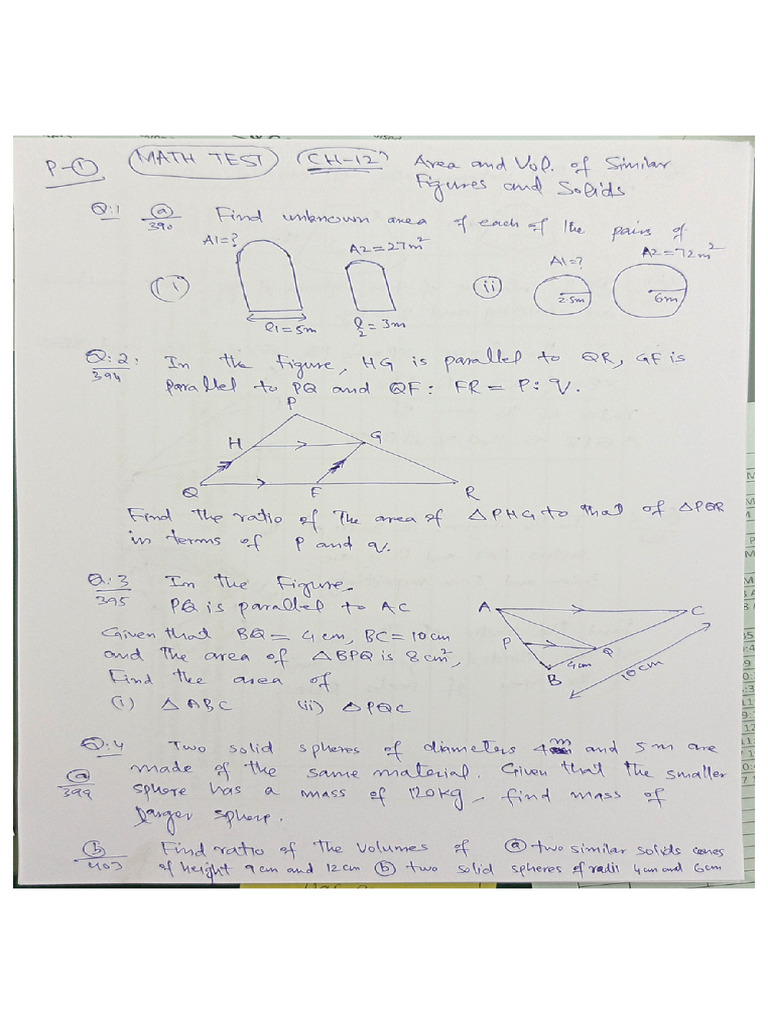 P-① MATH TEST CH-12 Area and Vol. of Similar
Figures and Solids
Q:1 ⓐ Find unknown area of each of the pairs of
390
A1=? A2=27m² A1=? A2=72m²
(i) (ii) 2.5m 6m
l1=5m l2=3m
Q:2: In the Figure, HG is parallel to QR, GF is
394 parallel to PQ and QF: FR = P:q.
P
H G
Q F R
Find the ratio of the area of △PHG to that of △PQR
in terms of P and q.
Q:3 In the Figure.
395 PQ is parallel to AC
Given that BQ = 4cm, BC=10cm
and the area of △BPQ is 8cm²,
Find the area of
(i) △ABC (ii) △PQC
A C
P Q
B 4cm 10cm
Q:4 Two solid spheres of diameters 4m and 5m are
ⓐ made of the same material. Given that the smaller
399 sphere has a mass of 120kg, find mass of
larger sphere.
ⓑ Find ratio of the volumes of ⓐ two similar solids cones
403 of height 9cm and 12cm ⓑ two solid spheres of radii 4cm and 6cm